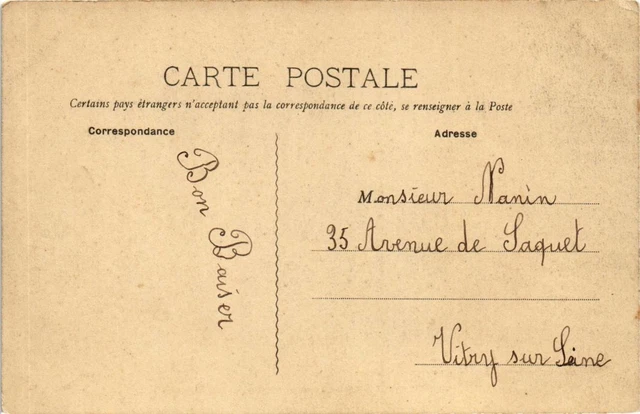 CARTE POSTALE
Certains pays étrangers n'acceptant pas la correspondance de ce côté, se renseigner à la Poste
Correspondance
Bon Baiser
Adresse
Monsieur Nanin
35 Avenue de Saquet
Vitry sur Seine